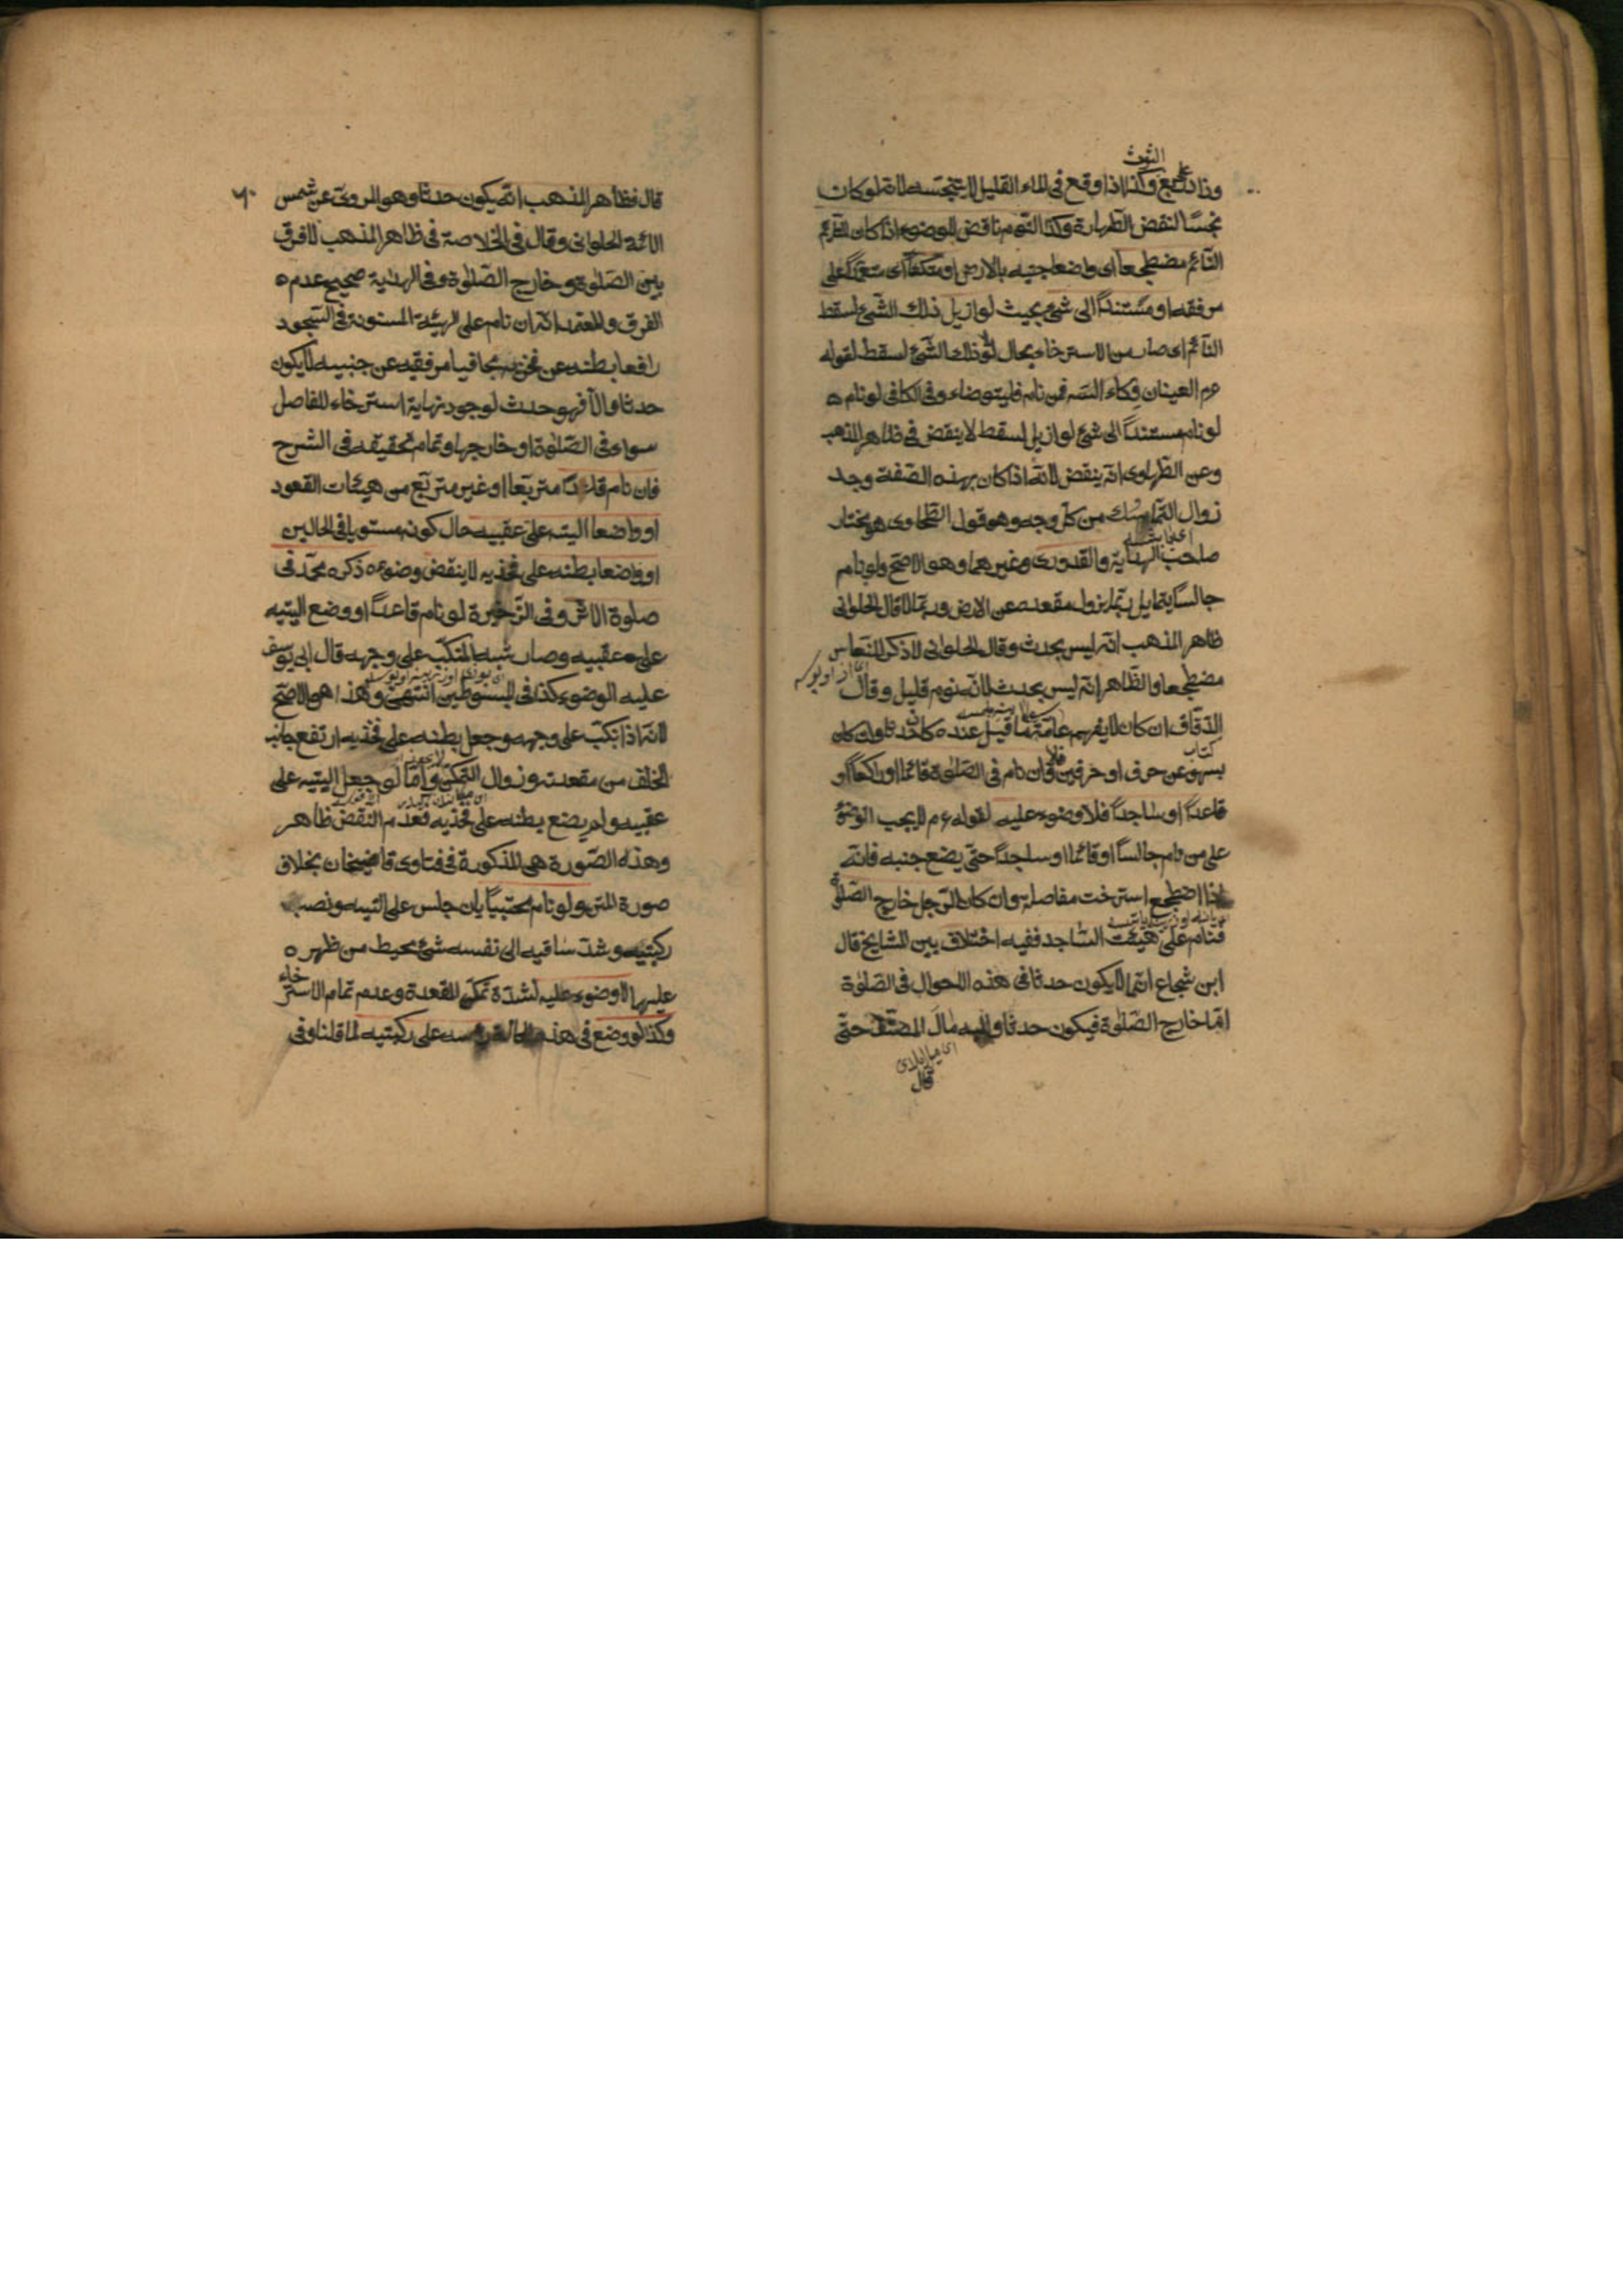 الثوب
على
وذا دمع وكذا اذا وقع فى الماء القليل لا ينجسه لانه لو كان
نجسًا لنقض الطهارة وكذا النوم ناقض للوضوء اذا كان
النّائم مضطجعاً اى واضعا جنبه بالارض او متكئاً اى متعمدًا على
مرفقه او مستنداً الى شئ بحيث لو ازيل ذلك الشئ لسقط
النّائم اى صار من الاسترخاء بحال لو ذلك الشئ لسقط لقوله
عم العينان وكاء السّه فمن نام فليتوضاء وفى الكافى لو نام ه
لو نام مستنداً الى شئ لو ازيل لسقط لا ينقض فى ظاهر المذهب
وعن الطّهاوى انّه ينقض لانّه اذا كان بهذه الصّفة وجد
زوال التّماسك من كلّ وجه وهو قول الطّحاوى هو مختار
صاحب الهداية والقدورى وغيرهما وهو الاصحّ ولو نام
جالسًا يتمايل ربّما يزول مقعده عن الارض وربّما لا قال الحلوانى
ظاهر المذهب انّه ليس بحدث وقال الحلوانى لا ذكر للنّعاس
مضطجعا والظّاهر انّه ليس بحدث لانّه نوم قليل وقال
الدّقاق ان كان لا يفهم عامّة ما قيل عنده كان حدثا وان كان
يسهو عن حرف او حرفين فلا وان نام فى الصّلوة قائما او راكعاً او
قاعداً او ساجداً فلا وضوء عليه لقوله عم لا يجب الوضؤ
على من نام جالساً او قائما او ساجداً حتّى يضع جنبه فانّه
اذا اضطجع استرخت مفاصله وان كان الرّجل خارج الصّلوة
فنام على هيئة السّاجد ففيه اختلاف بين المشايخ قال
ابن شجاع انّما لا يكون حدثا فى هذه الاحوال فى الصّلوة
امّا خارج الصّلوة فيكون حدثا واليه مال المصنّف حتّى
قال
٦٠
قال فظاهر المذهب انّه يكون حدثا وهو المروىّ عن شمس
الائمّة الحلوانى وقال فى الخلاصة فى ظاهر المذهب لا فرق
بين الصّلوة و خارج الصّلوة وفى الهداية صحيح عدم ه
الفرق والمعتمد انّه ان نام على الهيئة المسنونة فى السّجود
رافعا بطنه عن فخذيه مجافيا مرفقيه عن جنبيه لا يكون
حدثا والّا فهو حدث لوجود نهاية استرخاء المفاصل
سواء فى الصّلوة او خارجها وتمام تحقيقه فى الشرح
فان نام قاعدًا متربّعا او غير متربّع من هيئات القعود
او واضعا اليته على عقبيه حال كونه مستويا فى الحالين
او واضعا بطنه على فخذيه لا ينقض وضوءه ذكره محمّد فى
صلوة الاثر وفى الذّخيرة لو نام قاعداً او وضع اليتيه
على عقبيه وصار شبه المنكبّ على وجهه قال ابى يوسف
عليه الوضوء كذا فى المبسوطين انتهى وهذا هو الاصحّ
لانّه اذا انكبّ على وجهه وجعل بطنه على فخذيه ارتفع جانب
الخلف من مقعدته وزوال التمكّن وامّا لو جعل اليتيه على
عقبيه ولم يضع بطنه على فخذيه فعدم النقض ظاهر
وهذه الصّورة هى المذكورة فى فتاوى قاضيخان بخلاف
صورة المتن ولو نام محتبيًا بان جلس على اليتيه ونصب
ركبتيه وشدّ ساقيه الى نفسه بشئ يحيط من ظهره ه
عليهما لا وضوء عليه لشدّة تمكّن المقعدة وعدم تمام الاسترخاء
وكذا لو وضع فى هذه الحالة رأسه على ركبتيه لما قلنا وفى